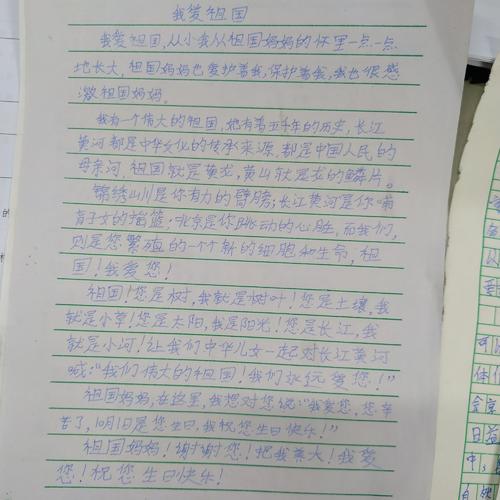 我爱祖国
我爱祖国,从小我从祖国妈妈的怀里一点一点
地长大,祖国妈妈也爱护着我,保护着我,我也很感
激祖国妈妈。
我有一个伟大的祖国,她有着五千年的历史,长江
黄河都是中华文化的传承来源,都是中国人民的
母亲河,祖国就是黄龙,黄山就是龙的鳞片。
锦绣山川是你有力的臂膀;长江黄河是你哺
育子女的摇篮;北京是你跳动的心脏,而我们,
则是您繁殖的一个个新的细胞和生命,祖
国!我爱您!
祖国!您是树,我就是树叶!您是土壤,我
就是小草!您是太阳,我是阳光!您是长江,我
就是小河!让我们中华儿女一起对长江黄河
喊:“我们伟大的祖国!我们永远爱您!”
祖国妈妈,在这里,我想对您说:“我爱您,您辛
苦了,10月1日是您生日,我祝您生日快乐!”
祖国妈妈!谢谢您!把我养大!我爱
您!祝您生日快乐!